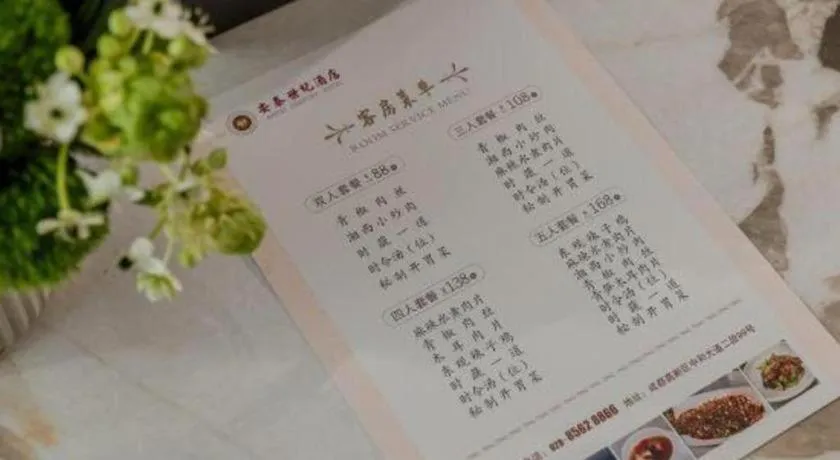 安泰世纪酒店
客房菜单
ROOM SERVICE MENU
双人套餐 ¥88
青椒肉丝
湘西小炒肉
时蔬一道
时令汤(位)
秘制开胃菜
三人套餐 ¥108
青椒肉丝
湘西小炒肉
麻辣水煮肉片
时蔬一道
时令汤(位)
秘制开胃菜
四人套餐 ¥138
麻辣水煮肉片
青椒肉丝
木耳肉片
东现辣子鸡
时蔬一道
时令汤(位)
秘制开胃菜
五人套餐 ¥168
东现辣子鸡
麻辣水煮肉片
湘西小炒肉
青椒肉丝
青笋木耳肉片
时令汤(位)
时蔬一道
秘制开胃菜
028-8562 8866 地址：成都高新区中和大道二段99号